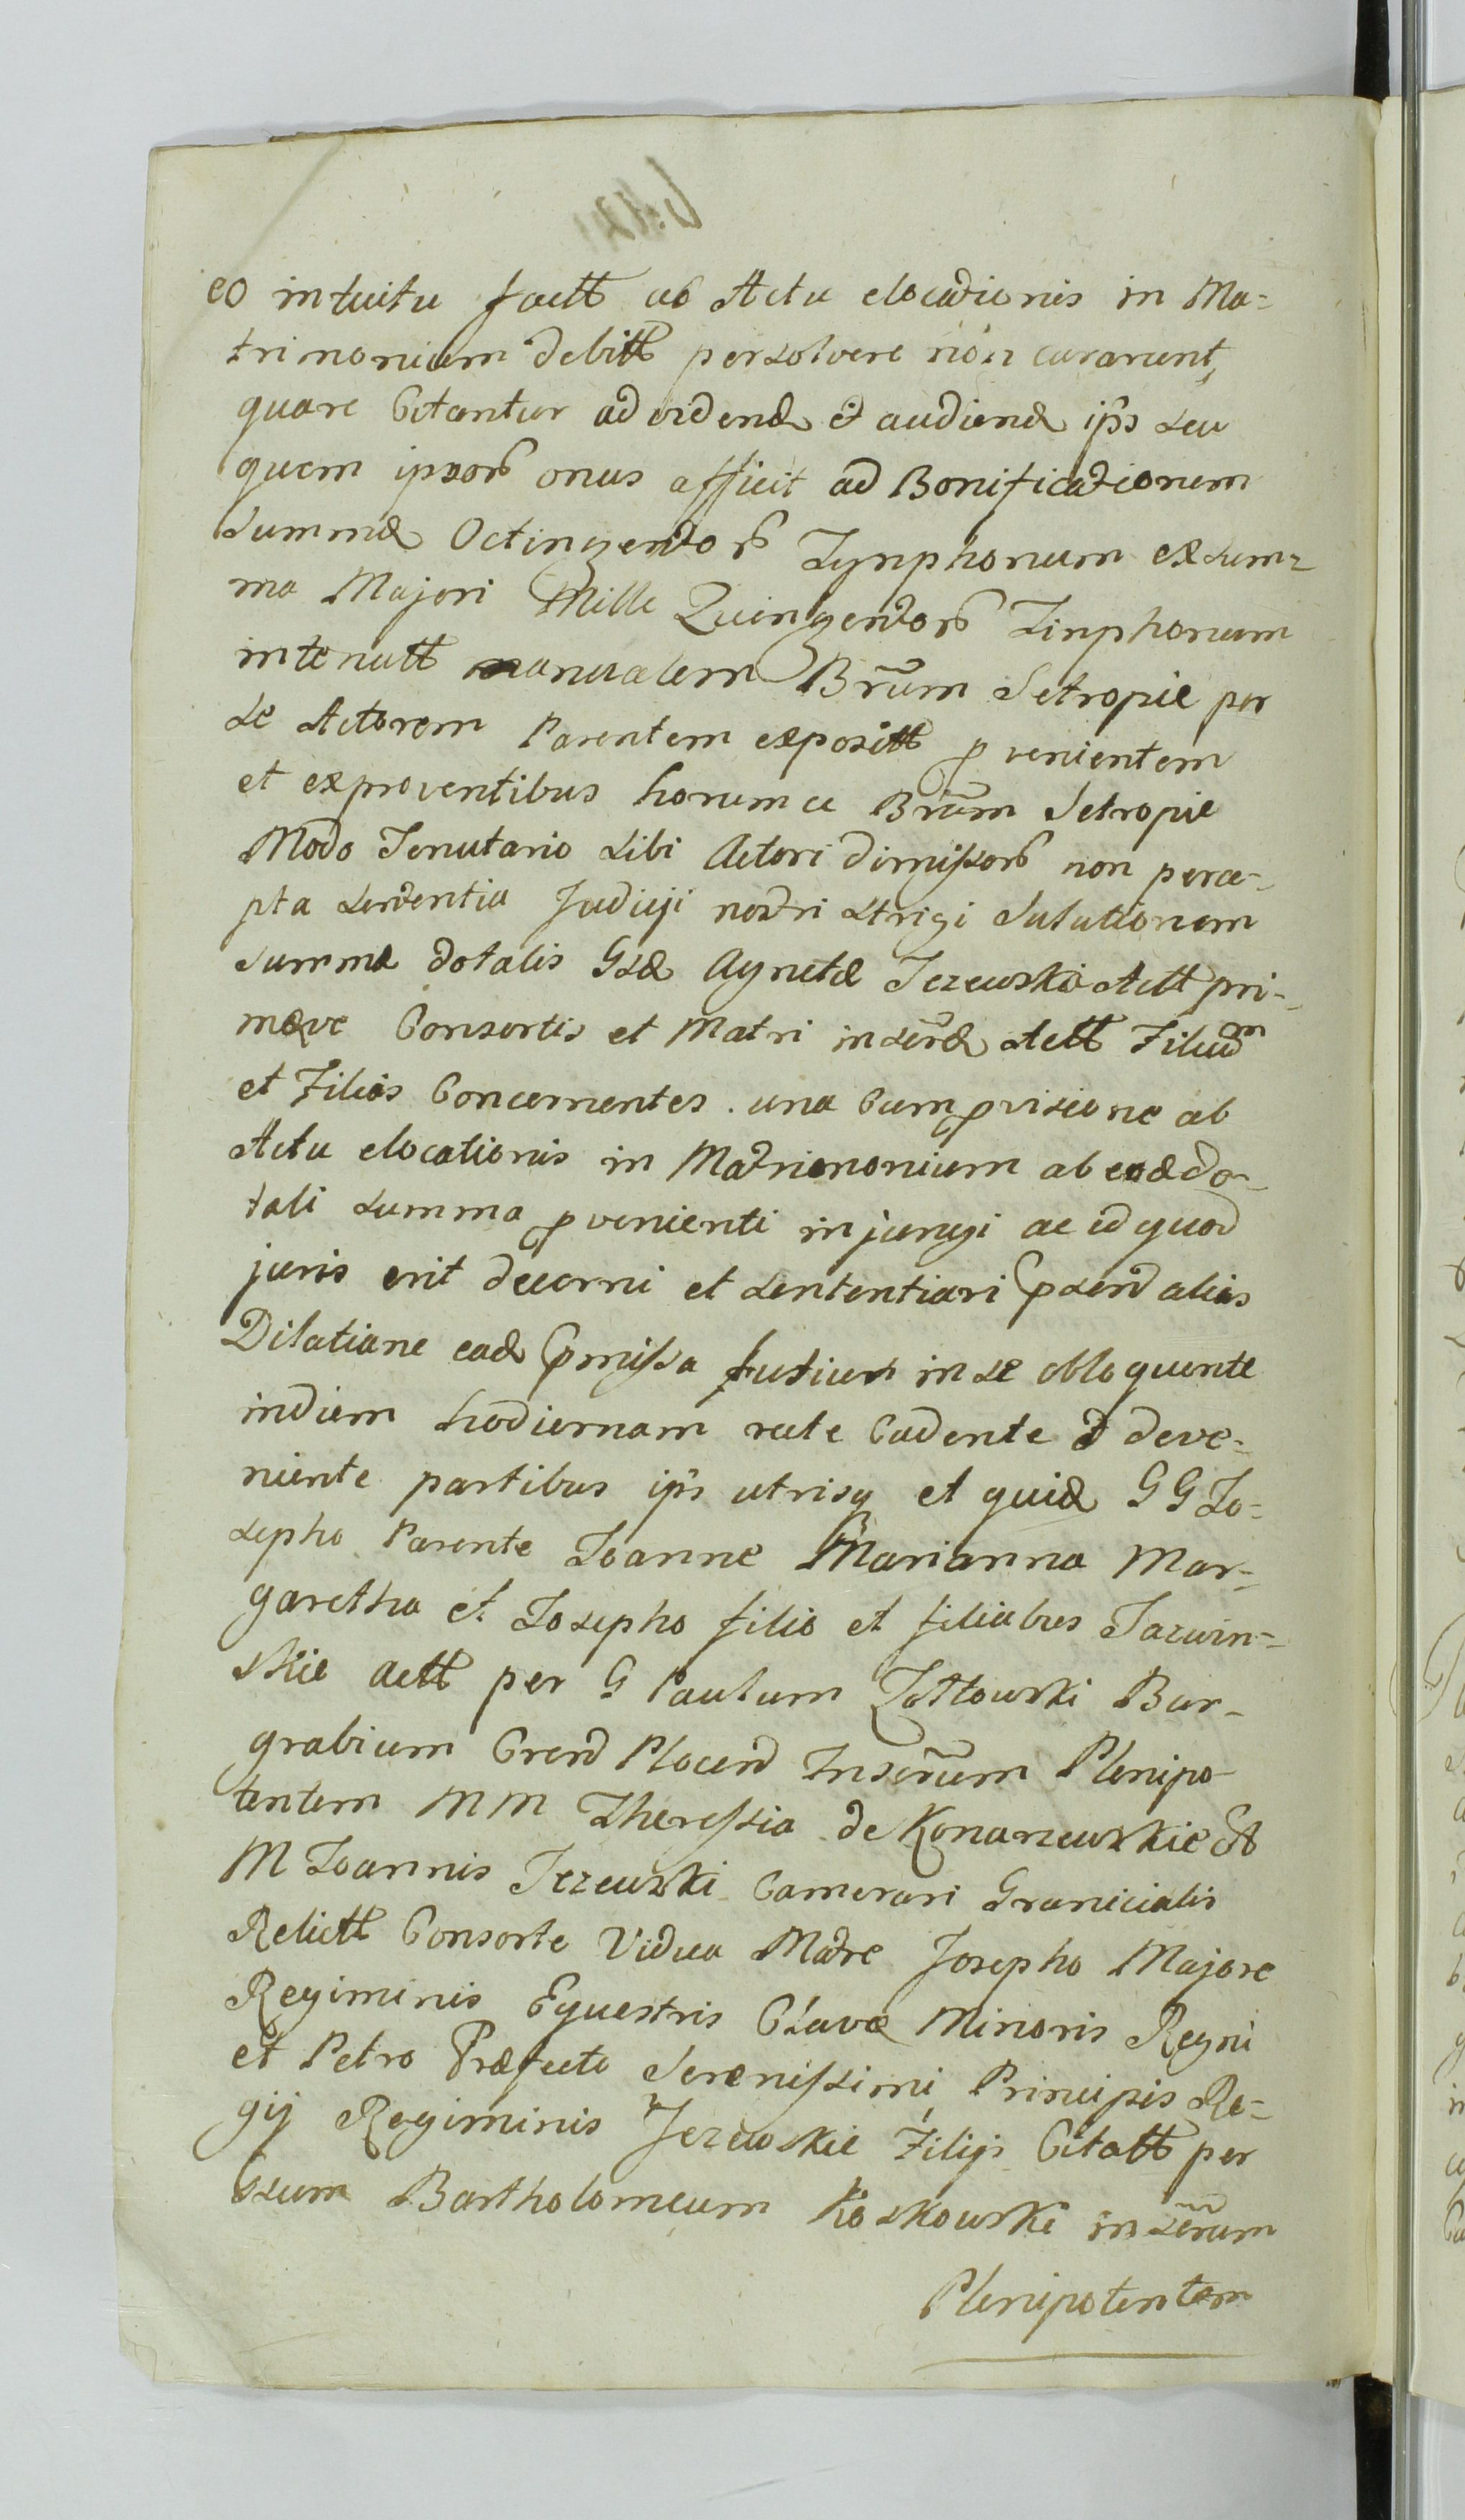 eo intuitu factt ab Actu elocationis in Ma-
trimonium debitt persolvere non curarunt,
quare Citantur ad videnđ et audienđ ips seu
quem ipsorb onus afficit ad Bonificationem
Summæ Octingentorb Tynphonum ex sum-
ma Majori Mille Quingentorb Tinphonum
in tenutt manualem Brum Setropie per
se Actorem Parentem expositt provenientem
et ex proventibus horum ce Brum Setropie
Modo Tenutario sibi Actori dimissorb non perce-
pta sententia Judicij nostri strigi Solutionem
Summæ dotalis Gsæ Agnetæ Jezewski Actt pri-
mæve Consortis et Matri inseræ Actt Filium
et Filias Concernentes una Cum provisione ab
Actu elocationis in Matrimonium ab eadđ do-
tali summa provenienti injungi ac id quod
juris erit decerni et sententiari præsend alias
Dilatione eadđ præmissa in se obloquente
in diem hodiernam recte Cadente et deve-
niente partibus ips utrisq et quidđ GG Jo-
sepho Parente Joanne Marianna Mar-
garetha et Josepho filio et filiabus Jarwin-
skie actt per G Paulum Zołtowski Bur-
grabium Crend Plocend Inserum Plenipo-
tentem MM Theressia de Konarzewskie
M Joannis Jezewski Camerari Granicialis
Relictt Consorte Vidua Matre Josepho Majore
Regiminis Equestris Clavæ Minoris Regni
et Petro Præfecto Serenissimi Principis Re-
gij Regiminis Jezewskie Filijs Citatt per
Gsum Bartholomeum Koskowski inserum
Plenipotentem